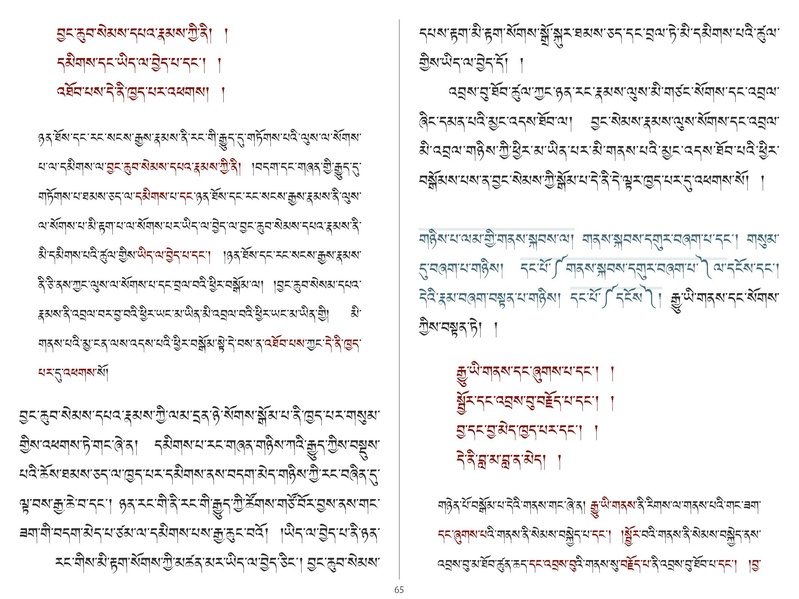 བྱང་ཆུབ་སེམས་དཔའ་རྣམས་ཀྱི་ནི། །
དམིགས་དང་ཡིད་ལ་བྱེད་པ་དང་། །
འཐོབ་པས་དེ་ནི་ཁྱད་པར་འཕགས། །
ཉན་ཐོས་དང་རང་སངས་རྒྱས་རྣམས་ནི་རང་གི་རྒྱུད་དུ་གཏོགས་པའི་ལུས་ལ་སོགས་
པ་ལ་དམིགས་ལ་བྱང་ཆུབ་སེམས་དཔའ་རྣམས་ཀྱི་ནི། །བདག་དང་གཞན་གྱི་རྒྱུད་དུ་
གཏོགས་པ་ཐམས་ཅད་ལ་དམིགས་པ་དང་ཉན་ཐོས་དང་རང་སངས་རྒྱས་རྣམས་ནི་ལུས་
ལ་སོགས་པ་མི་རྟག་པ་ལ་སོགས་པར་ཡིད་ལ་བྱེད་ལ་བྱང་ཆུབ་སེམས་དཔའ་རྣམས་ནི་
མི་དམིགས་པའི་ཚུལ་གྱིས་ཡིད་ལ་བྱེད་པ་དང་། །ཉན་ཐོས་དང་རང་སངས་རྒྱས་རྣམས་
ནི་ཅི་ནས་ཀྱང་ལུས་ལ་སོགས་པ་དང་བྲལ་བའི་ཕྱིར་བསྒོམ་ལ། །བྱང་ཆུབ་སེམས་དཔའ་
རྣམས་ནི་འབྲལ་བར་བྱ་བའི་ཕྱིར་ཡང་མ་ཡིན་མི་འབྲལ་བའི་ཕྱིར་ཡང་མ་ཡིན་གྱི། མི་
གནས་པའི་མྱ་ངན་ལས་འདས་པའི་ཕྱིར་བསྒོམ་སྟེ་དེ་བས་ན་འཐོབ་པས་ཀྱང་དེ་ནི་ཁྱད་
པར་དུ་འཕགས་སོ།
བྱང་ཆུབ་སེམས་དཔའ་རྣམས་ཀྱི་ལམ་དྲན་ཉེ་སོགས་སྒོམ་པ་ནི་ཁྱད་པར་གསུམ་
གྱིས་འཕགས་ཏེ་གང་ཞེ་ན། དམིགས་པ་རང་གཞན་གཉིས་ཀའི་རྒྱུད་ཀྱིས་བསྡུས་
པའི་ཆོས་ཐམས་ཅད་ལ་ཁྱད་པར་དམིགས་ནས་བདག་མེད་གཉིས་ཀྱི་རང་བཞིན་དུ་
ལྟ་བས་རྒྱ་ཆེ་བ་དང་། ཉན་རང་གི་ནི་རང་གི་རྒྱུད་ཀྱི་ཚོགས་གཙོ་བོར་བྱས་ནས་གང་
ཟག་གི་བདག་མེད་པ་ཙམ་ལ་དམིགས་པས་རྒྱ་ཆུང་བའོ། །ཡིད་ལ་བྱེད་པ་ནི་ཉན་
རང་གིས་མི་རྟག་སོགས་ཀྱི་མཚན་མར་ཡིད་ལ་བྱེད་ཅིང་། བྱང་ཆུབ་སེམས་
དཔས་རྟག་མི་རྟག་སོགས་སྒྲོ་སྐུར་ཐམས་ཅད་དང་བྲལ་ཏེ་མི་དམིགས་པའི་ཚུལ་
གྱིས་ཡིད་ལ་བྱེད་དོ། །
འབྲས་བུ་ཐོབ་ཚུལ་ཀྱང་ཉན་རང་རྣམས་ལུས་མི་གཙང་སོགས་དང་འབྲལ་
ཞིང་དམན་པའི་མྱང་འདས་ཐོབ་ལ། བྱང་སེམས་རྣམས་ལུས་སོགས་དང་འབྲལ་
མི་འབྲལ་གཉིས་ཀྱི་ཕྱིར་མ་ཡིན་པར་མི་གནས་པའི་མྱང་འདས་ཐོབ་པའི་ཕྱིར་
བསྒོམས་པས་ན་བྱང་སེམས་ཀྱི་སྒོམ་པ་དེ་ནི་དེ་ལྟར་ཁྱད་པར་དུ་འཕགས་སོ། །
གཉིས་པ་ལམ་གྱི་གནས་སྐབས་ལ། གནས་སྐབས་དགུར་བཞག་པ་དང་། གསུམ་
དུ་བཞག་པ་གཉིས། དང་པོ་༼གནས་སྐབས་དགུར་བཞག་པ་༽ལ་དངོས་དང་།
དེའི་རྣམ་བཞག་བསྟན་པ་གཉིས། དང་པོ་༼དངོས་༽། རྒྱུ་ཡི་གནས་དང་སོགས་
ཀྱིས་བསྟན་ཏེ། །
རྒྱུ་ཡི་གནས་དང་ཞུགས་པ་དང་། །
སྦྱོར་དང་འབྲས་བུ་བརྗོད་པ་དང་། །
བྱ་དང་བྱ་མེད་ཁྱད་པར་དང་། །
དེ་ནི་བླ་མ་བླ་ན་མེད། །
གཉེན་པོ་བསྒོམ་པ་དེའི་གནས་གང་ཞེ་ན། རྒྱུ་ཡི་གནས་ནི་རིགས་ལ་གནས་པའི་གང་ཟག་
དང་ཞུགས་པའི་གནས་ནི་སེམས་བསྐྱེད་པ་དང་། །སྦྱོར་བའི་གནས་ནི་སེམས་བསྐྱེད་ནས་
འབྲས་བུ་མ་ཐོབ་ཚུན་ཆད་དང་འབྲས་བུའི་གནས་སུ་བརྗོད་པ་ནི་འབྲས་བུ་ཐོབ་པ་དང་། །བྱ་
65